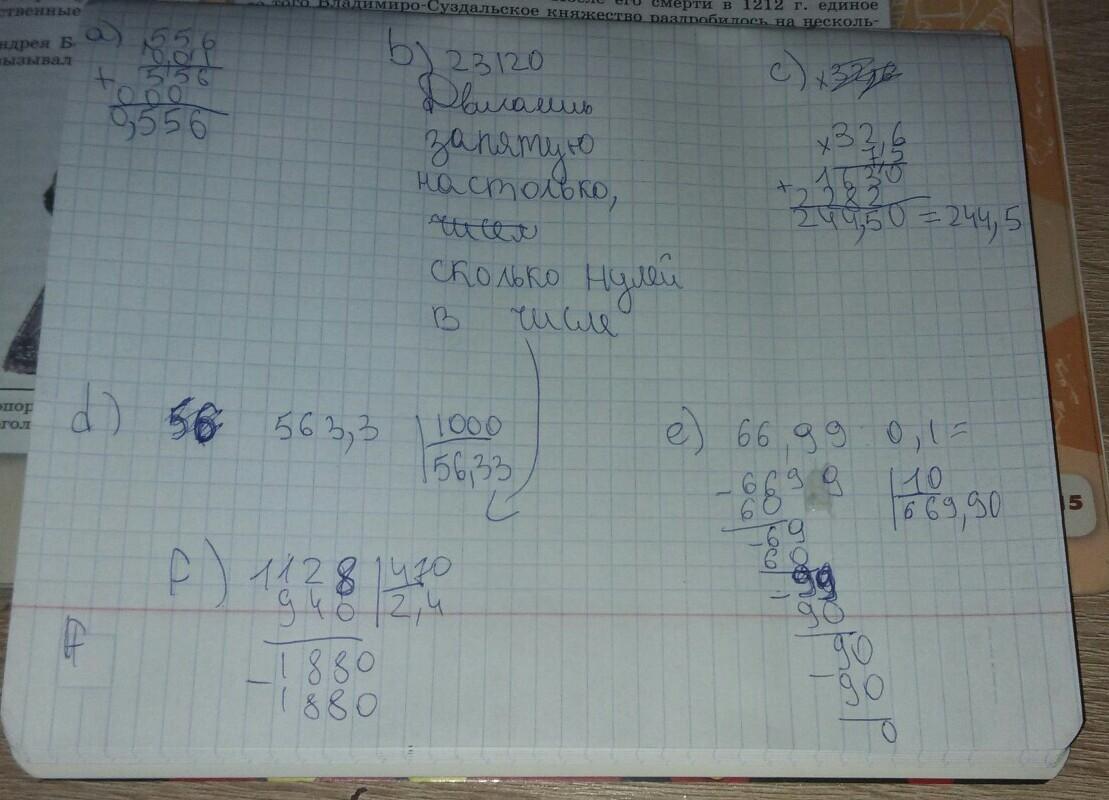 после его смерти в 1212 г. единое
того Владимиро-Суздальское княжество раздробилось на несколь-
ственные
ндрея Б
вызывал
a) 556
0,01
+ 556
000
0,556
b) 23120
Двигаешь
запятую
настолько,
чисел
сколько нулей
в числе
c) ×32,6
×32,6
7,5
+ 1630
2282
244,50 = 244,5
d) 56 563,3 | 1000
56,33
e) 66,99 0,1=
- 6699 | 10
60 669,90
- 69
60
- 99
90
- 90
90
0
f) 1128 | 470
940 2,4
- 1880
1880
F
опор
огол
15